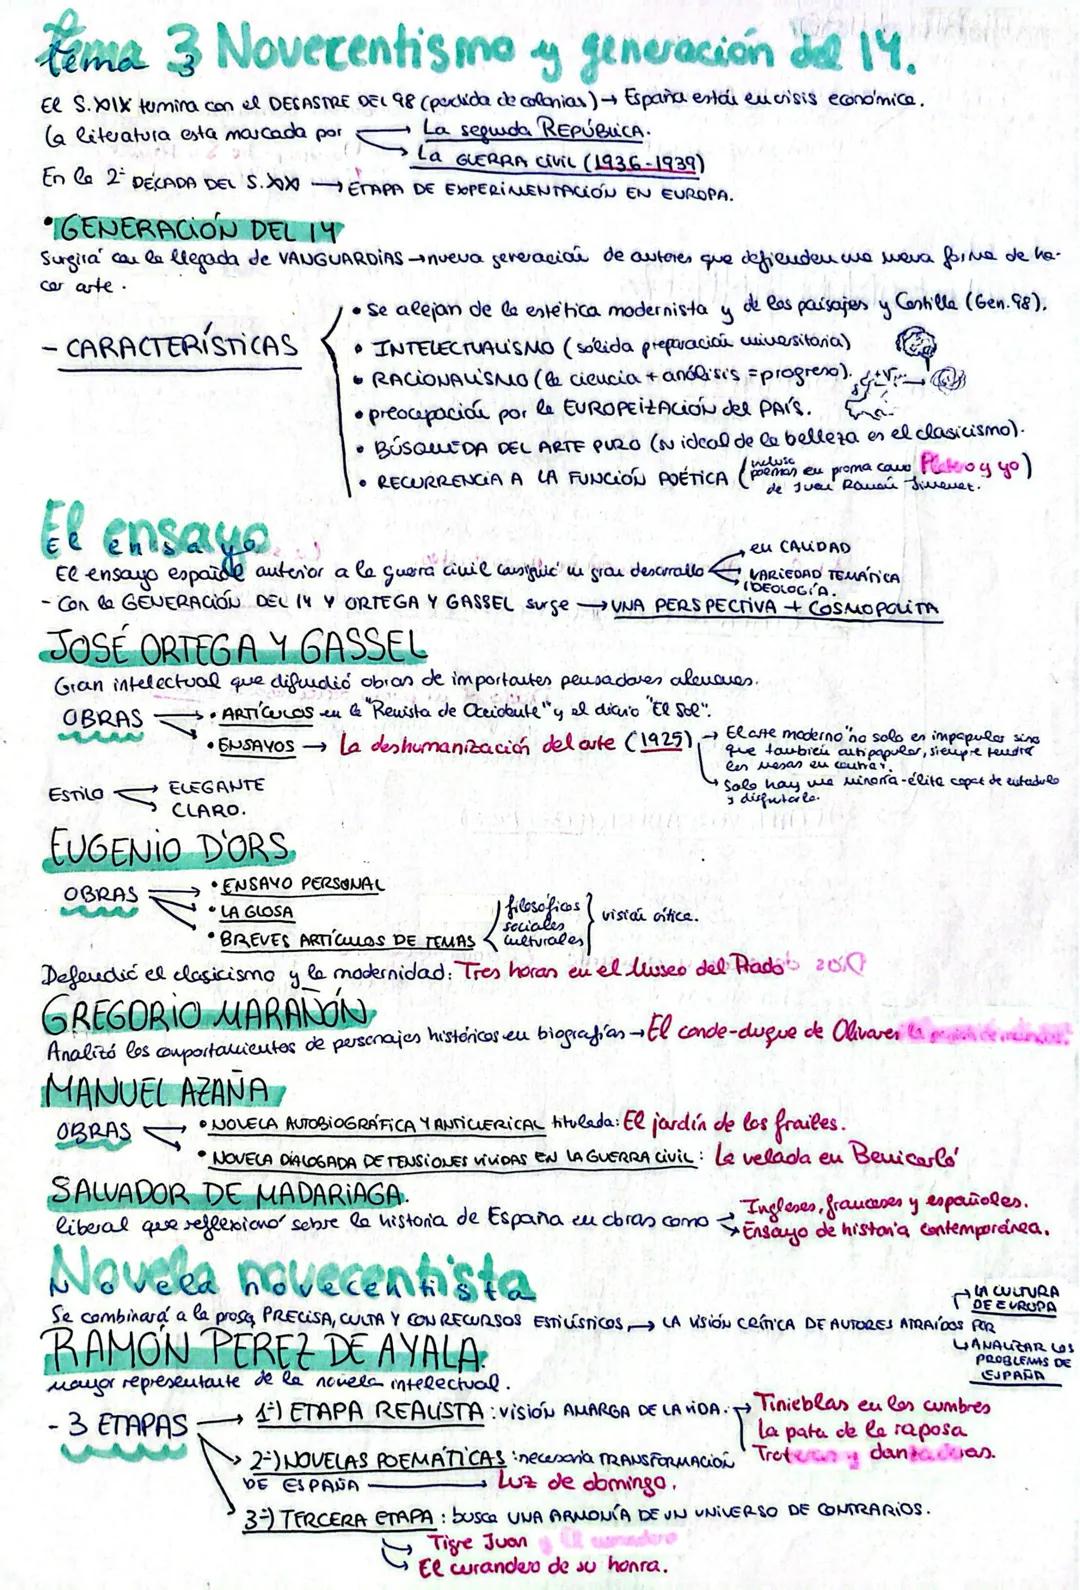 Tema 3 Novecentismo y generación del 14.
El S.XIX termina con el DESASTRE DEL 98 (perdida de colonias) → España está en crisis económica.
La literatura esta marcada por → La segunda REPÚBLICA.
→ La GUERRA CIVIL (1936-1939)
En la 2ª DÉCADA DEL S.XX → ETAPA DE EXPERIMENTACIÓN EN EUROPA.
•GENERACIÓN DEL 14
Surgirá con la llegada de VANGUARDIAS → nueva generación de autores que defienden una nueva forma de ha-
cer arte.
- CARACTERÍSTICAS
• Se alejan de la estética modernista y de los paisajes y Castilla (Gen.98).
• INTELECTUALISMO (sólida preparación universitaria)
• RACIONALISMO (la ciencia + análisis = progreso).
• preocupación por la EUROPEIZACIÓN del PAÍS.
• BÚSQUEDA DEL ARTE PURO (su ideal de la belleza es el clasicismo).
• RECURRENCIA A LA FUNCIÓN POÉTICA (incluso poemas en prosa como Platero y yo)
de Juan Ramón Jimenez.
El ensayo
El ensayo español anterior a la guerra civil consiguió un gran desarrollo → en CALIDAD
→ VARIEDAD TEMÁTICA
IDEOLOGÍA.
- Con la GENERACIÓN DEL 14 Y ORTEGA Y GASSEL surge → UNA PERSPECTIVA + COSMOPOLITA
JOSÉ ORTEGA Y GASSEL
Gran intelectual que difundió obras de importantes pensadores alemanes.
OBRAS → • ARTÍCULOS en la "Revista de Occidente" y el diario "El Sol".
→ • ENSAYOS → La deshumanización del arte (1925)
→ El arte moderno "no solo es impopular sino
que también antipopular, siempre tendrá
las masas en contra".
→ Solo hay una minoría-élite capaz de entenderlo
y disfrutarlo.
ESTILO → ELEGANTE
→ CLARO.
EUGENIO D'ORS
OBRAS → • ENSAYO PERSONAL
→ • LA GLOSA
→ • BREVES ARTÍCULOS DE TEMAS
filosóficos
sociales
culturales
visión crítica.
Defendió el clasicismo y la modernidad: Tres horas en el Museo del Prado
GREGORIO MARAÑÓN
Analizó los comportamientos de personajes históricos en biografías → El conde-duque de Olivares
MANUEL AZAÑA
OBRAS → • NOVELA AUTOBIOGRÁFICA Y ANTICLERICAL titulada: El jardín de los frailes.
→ • NOVELA DIALOGADA DE TENSIONES VIVIDAS EN LA GUERRA CIVIL: La velada en Benicarló
SALVADOR DE MADARIAGA.
liberal que reflexionó sobre la historia de España en obras como → Ingleses, franceses y españoles.
→ Ensayo de historia contemporánea.
Novela novecentista
Se combinará a la prosa PRECISA, CULTA Y CON RECURSOS ESTILÍSTICOS, → LA VISIÓN CRÍTICA DE AUTORES ATRAÍDOS POR
→ LA CULTURA
DE EUROPA
→ ANALIZAR LOS
PROBLEMAS DE
ESPAÑA
RAMÓN PEREZ DE AYALA.
mayor representante de la novela intelectual.
- 3 ETAPAS → 1ª) ETAPA REALISTA: visión AMARGA DE LA VIDA. → Tinieblas en las cumbres
La pata de la raposa
Troteras y danzaderas.
→ 2ª) NOVELAS POEMÁTICAS: necesaria TRANSFORMACIÓN
DE ESPAÑA → Luz de domingo.
3ª) TERCERA ETAPA: busca UNA ARMONÍA DE UN UNIVERSO DE CONTRARIOS.
→ Tigre Juan
→ El curandero de su honra.